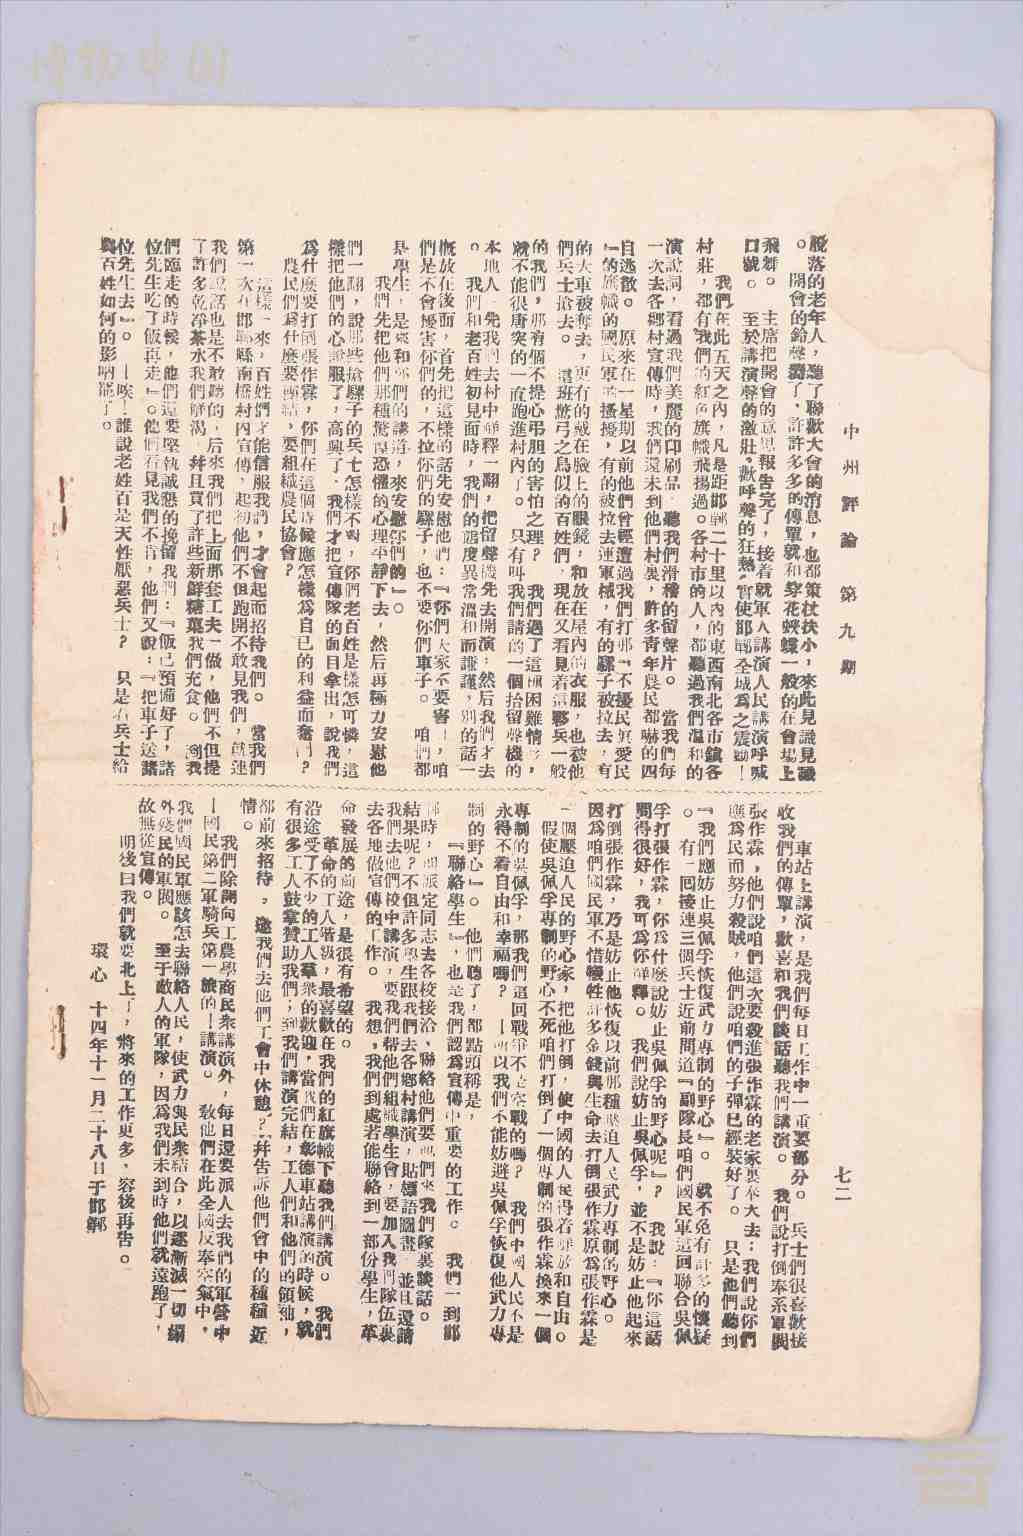 博物中国
中州評論 第九期
七二
脫落的老年人，聽了聯歡大會的消息，也都策杖扶小，來此見識見識
。開會的鈴聲響了，許許多多的傳單就和穿花蛺蝶一般的在會場上
飛舞。 主席把開會的意思報告完了，接着就軍人講演人民講演呼喊
口號。 至於講演聲的激壯，歡呼聲的狂熱，實使邯鄲全城爲之震動！
我們在此五天之內，凡是距邯鄲二十里以內的東西南北各市鎮各
村莊，都有我們的紅色旗幟飛揚過。各村市的人，都聽過我們溫和的
演說詞，看過我們美麗的印刷品，聽我們滑稽的留聲片。 當我們每
一次去各鄉村宣傳時，我們還未到他們村裏，許多青年農民都嚇的四
自逃散。 原來在一星期以前他們曾經遭過我們打那『不擾民眞愛民
』的旗幟的國民軍 騷擾，有的被拉去運軍械，有的騾子被拉去，有
的大車被奪去，更有的戴在臉上的眼鏡，和放在屋內的衣服，也被他
們兵士搶去。 這班驚弓之鳥似的百姓們，現在又看見着這夥兵一般
的我們，那有個不提心弔胆的害怕之理？ 我們過了這 困難情 ，
就不能很唐突的一直跑進村內了。 只有叫我們請的一個抬留聲機的
本地人，先我們去村中解釋一翻，把留聲機先去開演；然后我們才去
。我們和老百姓初見面時，我們的態度異常溫和而謙謹，別的話一
槪放在後面，首先把這樣的話先安慰他們：『你們大家不要害 ，咱
們是不會擾害你們的，不拉你們的騾子，也不要你們車子。 咱們都
是學生，是來和你們的講道，來安慰你們的』。
我們先把他們那種驚惶恐懼的心理平靜下去，然后再極力安慰他
們一翻，說那些搶騾子的兵士怎樣不 ，你們老百姓是樣怎可憐，這
樣把他們的心說服了，高興了。我們才把宣傳隊的面目拿出，說我們
爲什麼要打倒張作霖，你們在這個時候應怎樣爲自已的利益而奮鬥？
農民們爲什麼要團結，要組織農民協會？
這樣一來，百姓們才能信服我們，才會起而招待我們。 當我們
第一次在邯鄲縣南橋村內宣傳，起初他們不但跑開不敢見我們，就連
我們說話也是不敢聽的，后來我們把上面那套工夫一做，他們不但提
了許多乾淨茶水我們解渴，幷且買了許些新鮮糖菓我們充食。 到我
們臨走的時候，他們還要堅執誠懇的挽留我們：『飯已預備好了，諸
位先生吃了飯再走』。他們看見我們不肯，他們又說：『把車子送諸
位先生去』。 —唉！誰說老姓百是天性厭惡兵士？ 只是在兵士給
與百姓如何的影响罷了。
車站上講演，是我們每日工作中一重要部分。 兵士們很喜歡接
收我們的傳單，歡喜和我們談話聽我們講演。 我們說打倒奉系軍閥
張作霖，他們說咱們這次要殺進張作霖的老家裏奉天去：我們說你們
應爲民而努力殺賊，他們說咱們的子彈已經裝好了。 只是他們聽到
『我們應妨止吳佩孚恢復武力專制的野心』。 就不免有許多的懷疑
。有一回接連三個兵士近前問道『副隊長咱們國民軍這回聯合吳佩
孚打張作霖，你爲什麼說妨止吳佩孚的野心呢』？ 我說：『你這話
問得很好，我可爲你解釋。 我們說妨止吳佩孚，並不是妨止他起來
打倒張作霖，乃是妨止他恢復以前那種壓迫人民武力專制的野心。
因爲咱們國民軍不惜犧牲許多金錢與生命去打倒張作霖原爲張作霖是
一個壓迫人民的野心家，把他打倒，使中國的人民得着解放和自由。
假使吳佩孚專制的野心不死咱們打倒了一個專制的張作霖換來一個
專制的吳佩孚，那我們這回戰爭不是空戰的嗎？ 我們中國人民不是
永得不着自由和幸福嗎？ —所以我們不能妨避吳佩孚恢復他武力專
制的野心』。他們聽了，都點頭稱是，
『聯絡學生』，也是我們認爲宣傳中重要的工作。 我們一到邯
鄲時，即派定同志去各校接洽，聯絡他們要他們來我們隊裏談話。
結果呢？不但許多學生跟我們去各鄉村講演，貼標語圖畫，並且還請
我們去他們校中講演，要我們帮他們組織學生會，要加入我們隊伍裏
去各地做宣傳的工作。 我想，我們到處若能聯絡到一部份學生，革
命發展的前途，是很有希望的。
革命的工人階級，最喜歡在我們的紅旗幟下聽我們講演。 我們
沿途受了不少的工人羣衆的歡迎，當我們在彰德車站講演的時候，就
有很多工人鼓掌贊助我們；到我們講演完結，工人們和他們的領袖，
都前來招待，邀我們去他們工會中休憩，幷告訴他們會中的種種近
情。
我們除開向工農學商民衆講演外，每日還要派人去我們的軍營中
—國民第二軍騎兵第一旅的—講演。 敎他們在此全國反奉空氣中，
我們國民軍應該怎去聯絡人民，使武力與民衆結合，以逐漸滅一切禍
外殘民的軍閥。 至于敵人的軍隊，因爲我們未到時他們就遠跑了，
故無從宣傳。
明後日我們就要北上了，將來的工作更多，容後再告。
環心 十四年十一月二十八日于邯鄲